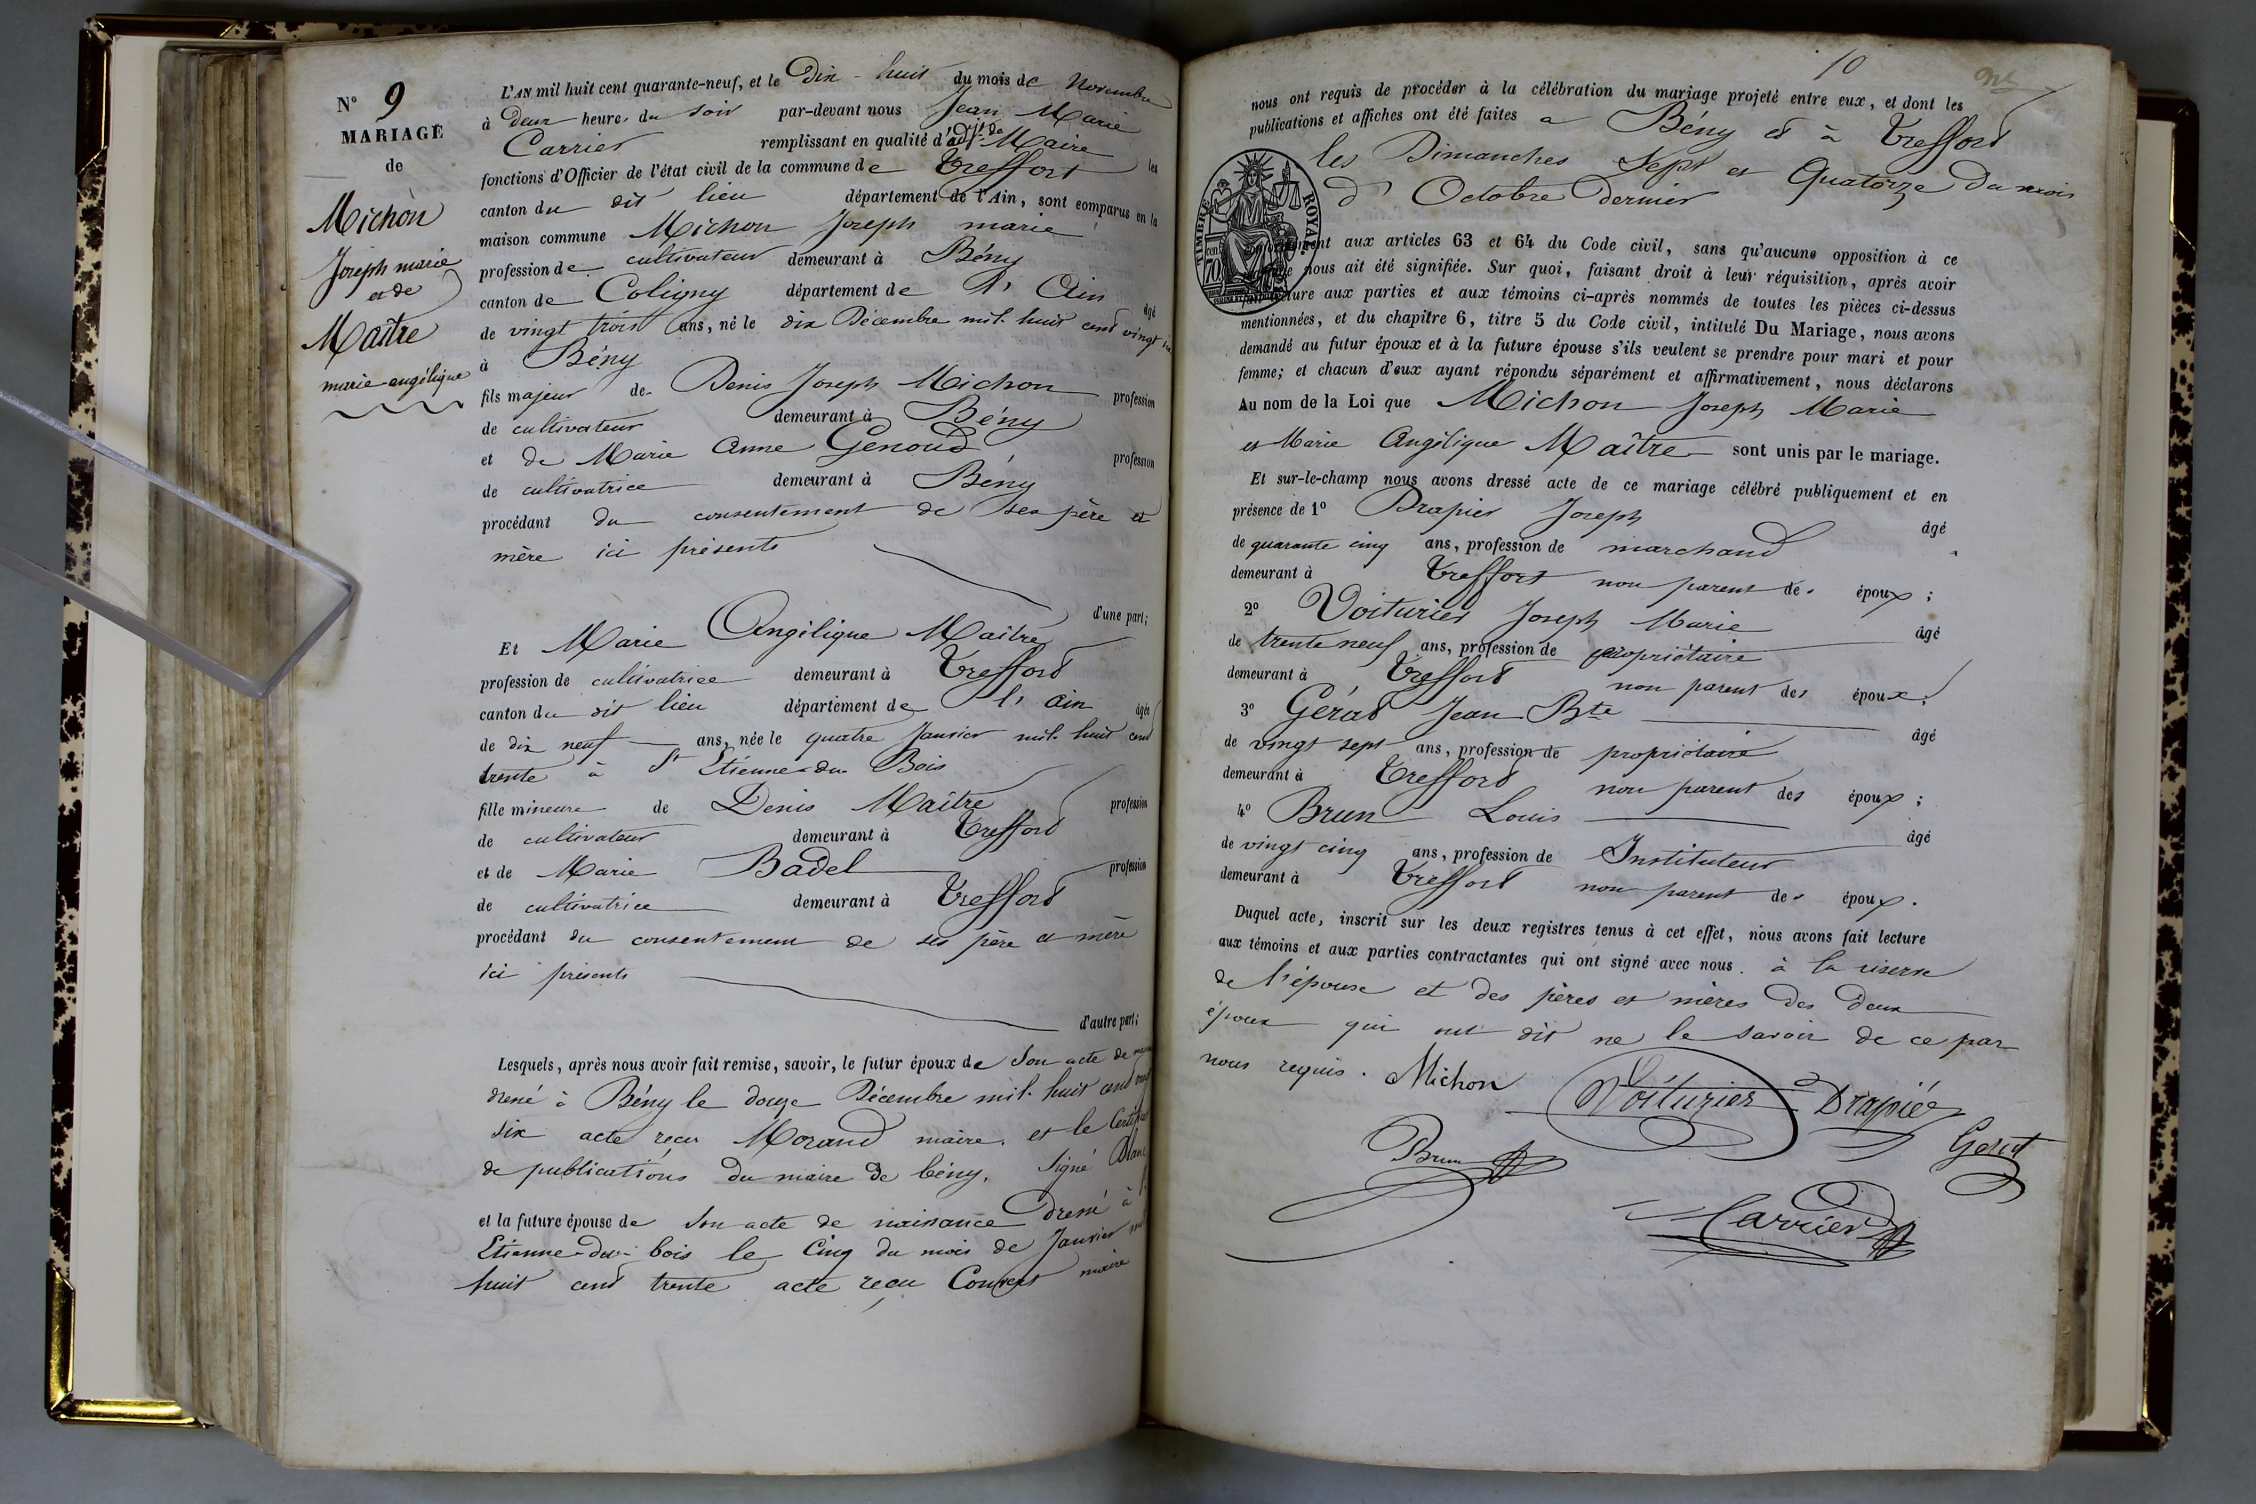 N° 9
MARIAGE
de
Michon
Joseph marie
et de
Maître
marie angélique
L'AN mil huit cent quarante-neuf, et le Dix-huit du mois de Novembre
à Deux heures du soir par-devant nous Jean Marie
Carrier remplissant en qualité d'adjt de Maire les
fonctions d'Officier de l'état civil de la commune de Treffort
canton du dit lieu département de l'Ain, sont comparus en la
maison commune Michon Joseph marie
profession de cultivateur demeurant à Bény
canton de Coligny département de l'Ain âgé
de vingt trois ans, né le dix Décembre mil huit cent vingt six
à Bény
fils majeur de Denis Joseph Michon profession
de cultivateur demeurant à Bény
et de Marie Anne Genoud profession
de cultivatrice demeurant à Bény
procédant du consentement de ses père et
mère ici présents
d'une part;
Et Marie Angélique Maître
profession de cultivatrice demeurant à Treffort
canton du dit lieu département de l'ain âgée
de dix neuf ans, née le quatre Janvier mil huit cent
trente à St Etienne-du Bois
fille mineure de Denis Maître profession
de cultivateur demeurant à Treffort
et de Marie Badel profession
de cultivatrice demeurant à Treffort
procédant du consentement de ses père et mère
ici présents
d'autre part;
Lesquels, après nous avoir fait remise, savoir, le futur époux de Son acte de
dressé à Bény le douze Décembre mil huit cent vingt
six acte reçu Morand maire. et le Certificat
de publications du maire de bény, signé Blanc
et la future épouse de Son acte de naissance dressé à
Etienne-du-bois le Cinq du mois de Janvier mil
huit cent trente acte reçu Convert maire
10
nous ont requis de procéder à la célébration du mariage projeté entre eux, et dont les
publications et affiches ont été faites a Bény et à Treffort
les Dimanches Sept et Quatorze du mois
d'Octobre dernier
TIMBRE ROYAL
70
aux articles 63 et 64 du Code civil, sans qu'aucune opposition à ce
nous ait été signifiée. Sur quoi, faisant droit à leur réquisition, après avoir
lecture aux parties et aux témoins ci-après nommés de toutes les pièces ci-dessus
mentionnées, et du chapitre 6, titre 5 du Code civil, intitulé Du Mariage, nous avons
demandé au futur époux et à la future épouse s'ils veulent se prendre pour mari et pour
femme; et chacun d'eux ayant répondu séparément et affirmativement, nous déclarons
Au nom de la Loi que Michon Joseph Marie
et Marie Angélique Maître sont unis par le mariage.
Et sur-le-champ nous avons dressé acte de ce mariage célébré publiquement et en
présence de 1° Drapier Joseph âgé
de quarante cinq ans, profession de marchand
demeurant à Treffort non parent des époux;
2° Voiturier Joseph Marie âgé
de trente neuf ans, profession de propriétaire
demeurant à Treffort non parent des époux;
3° Gérat Jean Bte âgé
de vingt sept ans, profession de propriétaire
demeurant à Treffort non parent des époux;
4° Brun Louis âgé
de vingt cinq ans, profession de Instituteur
demeurant à Treffort non parent des époux.
Duquel acte, inscrit sur les deux registres tenus à cet effet, nous avons fait lecture
aux témoins et aux parties contractantes qui ont signé avec nous. à la réserve
de l'épouse et des pères et mères des deux
époux qui ont dit ne le savoir de ce par
nous requis. Michon Voiturier Drapier
Brun Gerat
Carrier